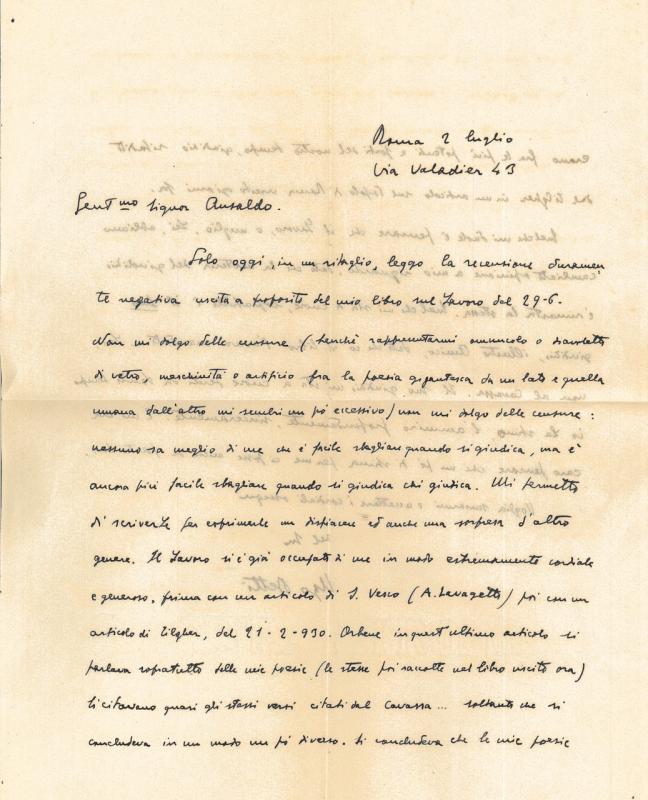 Roma 2 luglio
Via Valadier 43
Gent.mo Signor Ansaldo.
Solo oggi, in un ritaglio, leggo la recensione duramen
te negativa uscita a proposito del mio libro sul Lavoro del 29-6.
Non mi dolgo delle censure (benchè rappresentarmi omuncolo o diavoletto
di vetro, meschinità o artificio fra la poesia gigantesca da un lato e quella
umana dall'altro mi sembri un pò eccessivo) non mi dolgo delle censure:
nessuno sa meglio di me che è facile sbagliare quando si giudica, ma è
ancora più facile sbagliare quando si giudica chi giudica. Mi permetto
di scriverLe per esprimerLe un dispiacere ed anche una sorpresa d'altro
genere. Il Lavoro si è già occupato di me in modo estremamente cordiale
e generoso, prima con un articolo di S. Vesco (A. Lavagetto) poi con un
articolo di Tilgher, del 21-2-930. Orbene in quest'ultimo articolo si
parlava sopratutto delle mie poesie (le stesse poi raccolte nel libro uscito ora)
Si citavano quasi gli stessi versi citati dal Cavassa... soltanto che si
concludeva in un modo un pò diverso. Si concludeva che le mie poesie